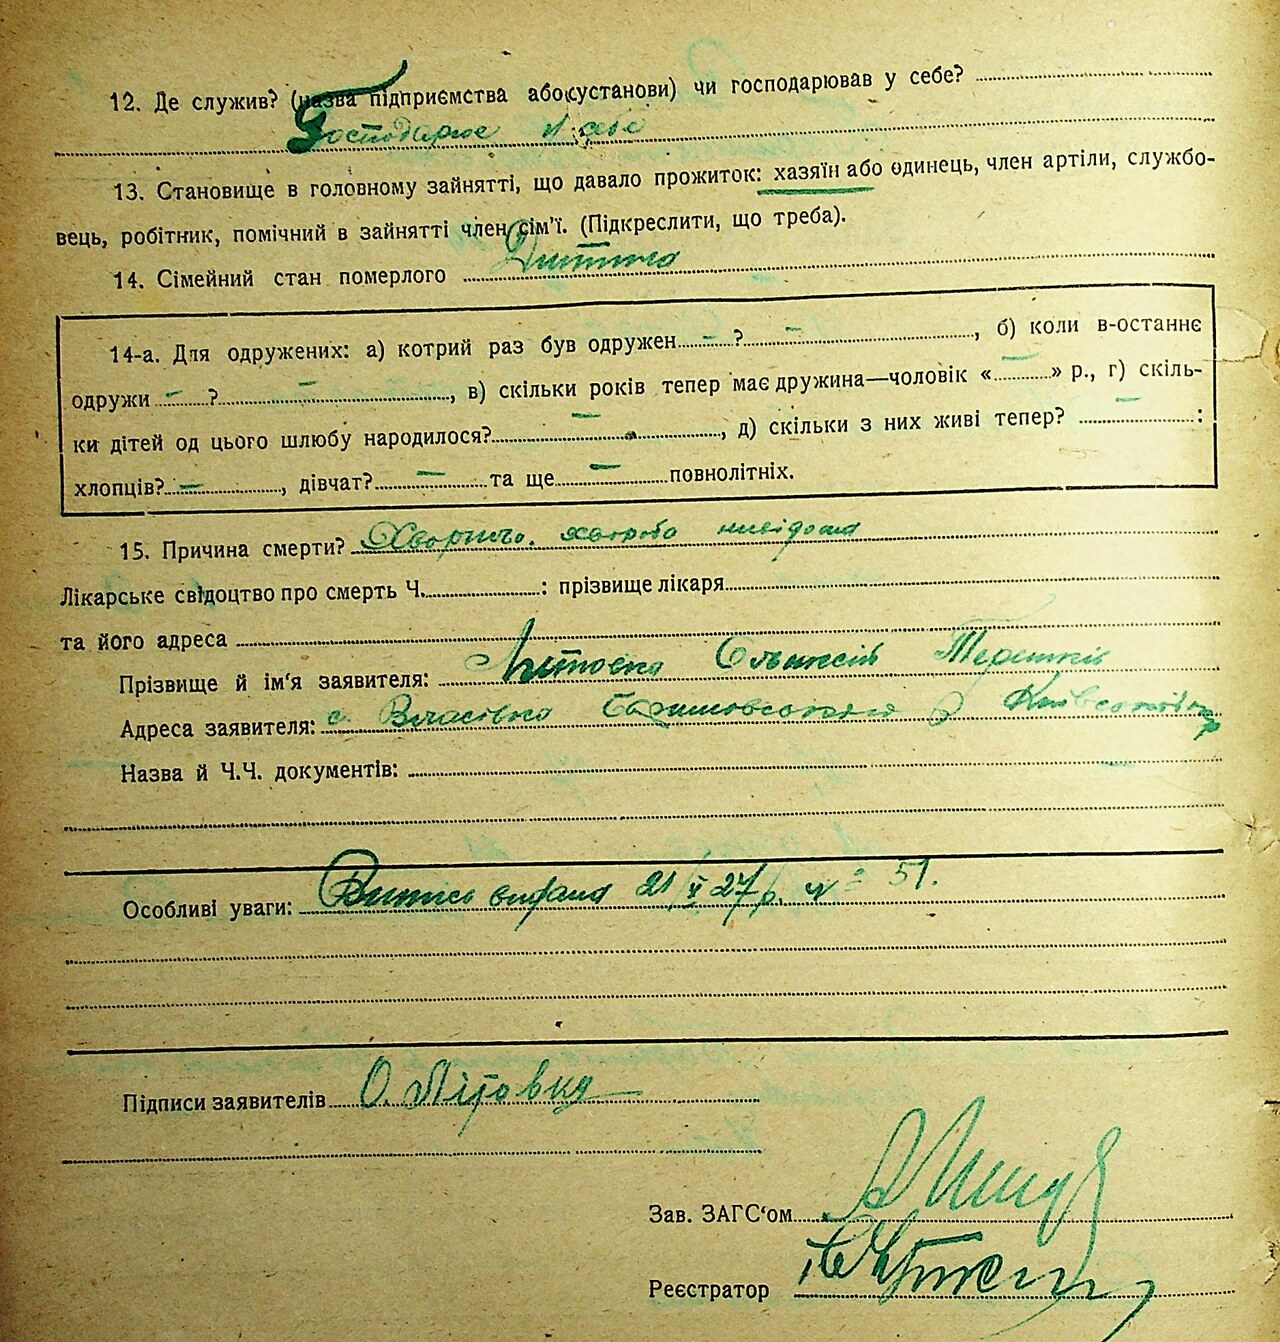 12. Де служив? (назва підприємства або установи) чи господарював у себе?
Господарює у себе
13. Становище в головному зайнятті, що давало прожиток: хазяїн або одинець, член артілі, службо-
вець, робітник, помічний в зайнятті член сім'ї. (Підкреслити, що треба).
14. Сімейний стан померлого Дитина
14-а. Для одружених: а) котрий раз був одружен — ? — , б) коли в-останнє
одружи — ? — , в) скільки років тепер має дружина—чоловік « — » р., г) скіль-
ки дітей од цього шлюбу народилося? — , д) скільки з них живі тепер? — :
хлопців? — , дівчат? — та ще — повнолітніх.
15. Причина смерти? хвороба невідома
Лікарське свідоцтво про смерть Ч. : прізвище лікаря
та його адреса
Прізвище й ім'я заявителя: Литовка Олексій
Адреса заявителя: с. Власівка Баришовського р Київської
Назва й Ч.Ч. документів:
Особливі уваги: Випись видана 21/X 27 р. № 51.
Підписи заявителів О. Літовка
Зав. ЗАГС'ом
Реєстратор